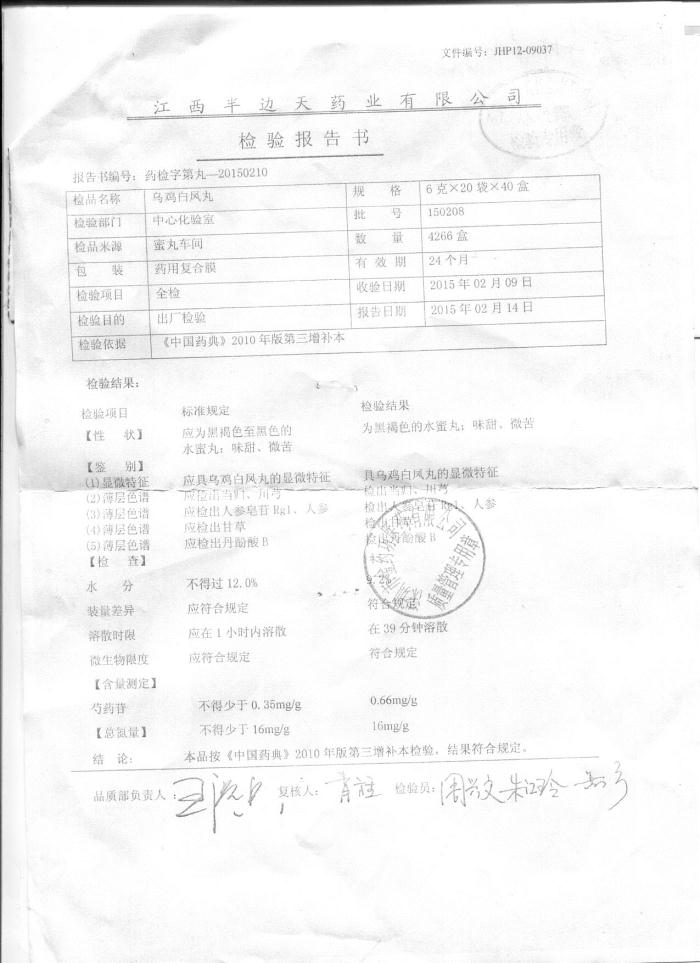 文件编号：JHP12-09037
江西半边天药业有限公司
检验报告书
报告书编号：药检字第丸—20150210
检品名称 乌鸡白凤丸 规格 6克×20袋×40盒
检验部门 中心化验室 批号 150208
检品来源 蜜丸车间 数量 4266盒
包装 药用复合膜 有效期 24个月
检验项目 全检 收验日期 2015年02月09日
检验目的 出厂检验 报告日期 2015年02月14日
检验依据 《中国药典》2010年版第三增补本
检验结果：
检验项目 标准规定 检验结果
【性状】 应为黑褐色至黑色的 为黑褐色的水蜜丸；味甜、微苦
水蜜丸；味甜、微苦
【鉴别】
(1)显微特征 应具乌鸡白凤丸的显微特征 具乌鸡白凤丸的显微特征
(2)薄层色谱 应检出当归、川芎 检出当归、川芎
(3)薄层色谱 应检出人参皂苷Rg1、人参 检出人参皂苷Rg1、人参
(4)薄层色谱 应检出甘草 检出甘草
(5)薄层色谱 应检出丹酚酸B 检出丹酚酸B
【检查】
水分 不得过12.0%
装量差异 应符合规定 符合规定
溶散时限 应在1小时内溶散 在39分钟溶散
微生物限度 应符合规定 符合规定
【含量测定】
芍药苷 不得少于0.35mg/g 0.66mg/g
【总氮量】 不得少于16mg/g 16mg/g
结论： 本品按《中国药典》2010年版第三增补本检验，结果符合规定。
品质部负责人： 复核人： 检验员：
质量管理专用章